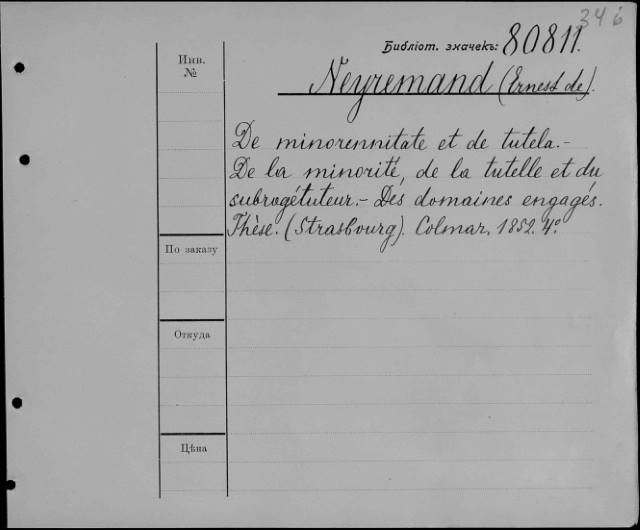 346
Библіот. значекъ: 80811.
Инв.
№
Neyremand (Ernest de).
De minorennitate et de tutela.-
De la minorité, de la tutelle et du
subrogétuteur.- Des domaines engagés.
Thèse. (Strasbourg). Colmar, 1852. 4º
По заказу
Откуда
Цѣна